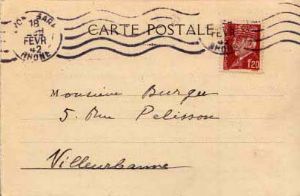 LYON GARE
18
FEVR
42
RHONE
CARTE POSTALE
1F20
Monsieur Burque
5. Rue Pelisson
Villeurbanne